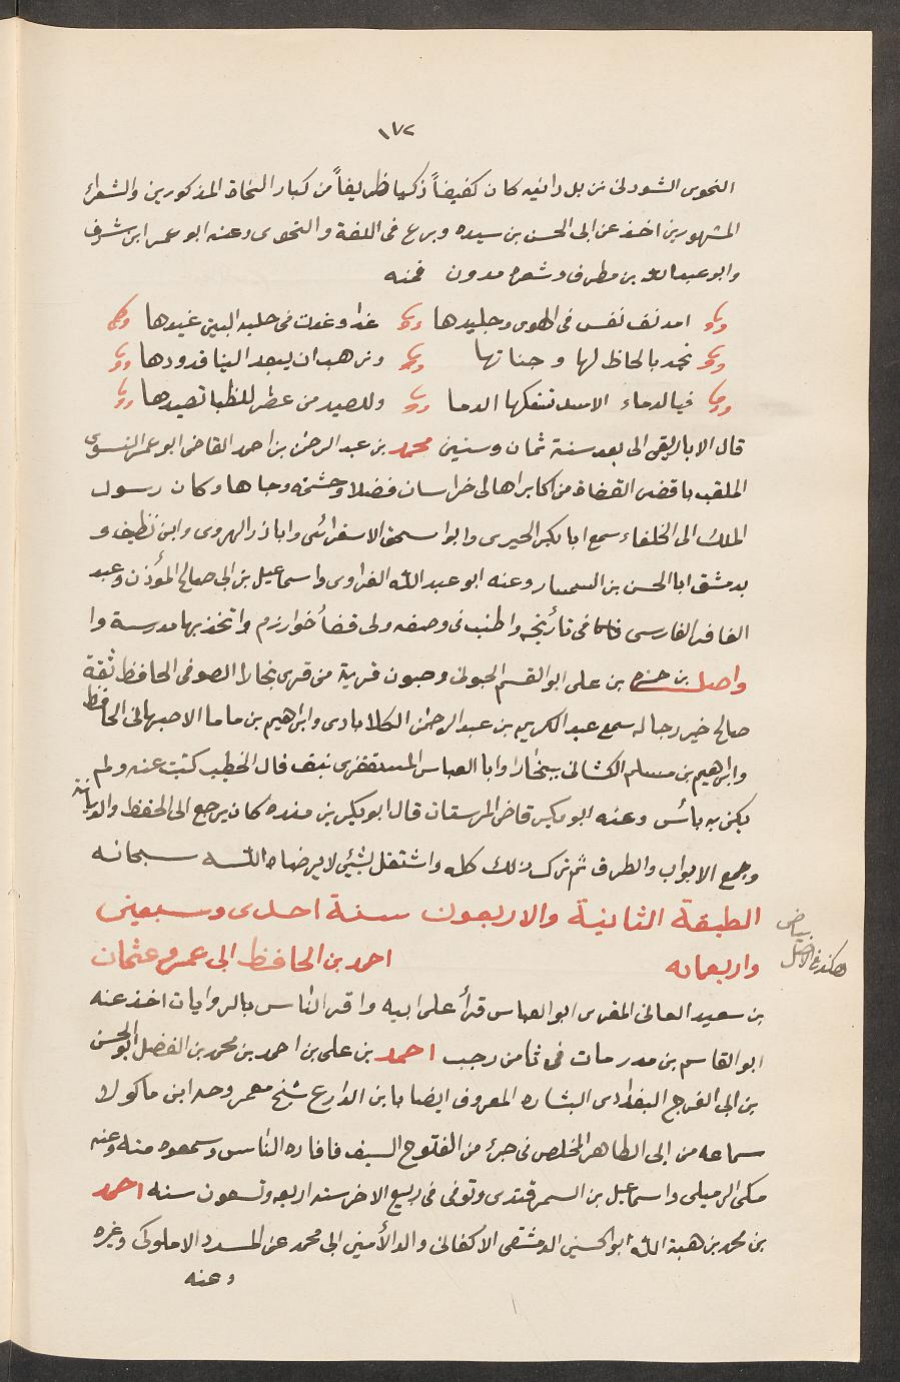 ١٧٢
النحوى الشودنى من بل دانيه كان كفيفاً ذكيا ظريفاً من كبار النحاة المذكورين والشعراء
المشهورين اخذ عن ابى الحسن بن سيده وبرع فى اللغة والنحو وعنه ابو عمر ابن شرف
وابو عبد الله بن مطرف وشعره مدون فمنه
امدنف نفس فى الهوى وجليدها غدا وغدت فى حلبه البين غيدها
بالحاظ لها وجناتها ومن هب ان يبعد الينا قدودها
فيالدماء الاسد تسفكها الدما وللصيد من عطر للظبا تصيدها
قال الابار بقى الى بعد سنة ثمان وستين محمد بن عبد الرحمن بن احمد القاضى ابو عمر النسوى
الملقب باقضى القضاة من اكابر اهالى خراسان فضلا وحشمة وجاها وكان رسول
الملك الى الخلفاء سمع ابا بكر الحيرى وابو اسحق الاسفرائنى وابا ذر الهروى وابن نظيف و
بدمشق ابا الحسن بن السمسار وعنه ابو عبد الله الفراوى واسماعيل بن ابى صالح المؤذن وعبد
الغافر الفارسى فى تأريخه واطنب فى وصفه ولى قضأ خوارزم واتخذ بها مدرسة وا
واصل بن حمزه بن على ابو القسم الحبونى وحبون قرية من قرى بخارا الصوفى الحافظ ثقة
صالح خير رحاله سمع عبد الكريم بن عبد الرحمن الكلابادى وابراهيم بن ماما الاصبهانى الحافظ
وابراهيم بن مسلم الكشانى ببخارا وابا العباس المستغفرى بنسف قال الخطيب كتبت عنه ولم
يكن به بأس وعنه ابو بكر قاضى المرستان قال ابو بكر بن منده كان يرجع الى الحفظ والديانة
وجمع الابواب والطرق ثم ترك ذلك كله واشتغل بشيئ لا يرضاه الله سبحانه
الطبقة الثانية والاربعون سنة احدى وسبعين
بياض
هكذا فى الاصل
واربعمائه احمد بن الحافظ ابى عمرو عثمان
بن سعيد العانى المقرى ابو العباس قرأ على ابيه واقر الناس بالروايات اخذ عنه
ابو القاسم بن مدر مات فى ثامن رجب احمد بن على بن احمد بن محمد بن الفضل ابو الحسن
بن ابى الفرج البغدادى البشاره المعروف ايضا بابن الدارع شيخ معمر وجد ابن ماكولا
سماعه من ابى الطاهر المخلص فى جزء من الفتوح السيف فافاده الناس وسمعوه منه وعنه
مكى الرميلى واسماعيل بن السمرقندى وتوفى فى ربيع الاخر سنه اربعه وتسعون سنه احمد
بن محمد بن هبة الله ابو الحسين الدمشقى الاكفانى والد الأمين ابى محمد عن المسدد الاملوكى وغيره
وعنه